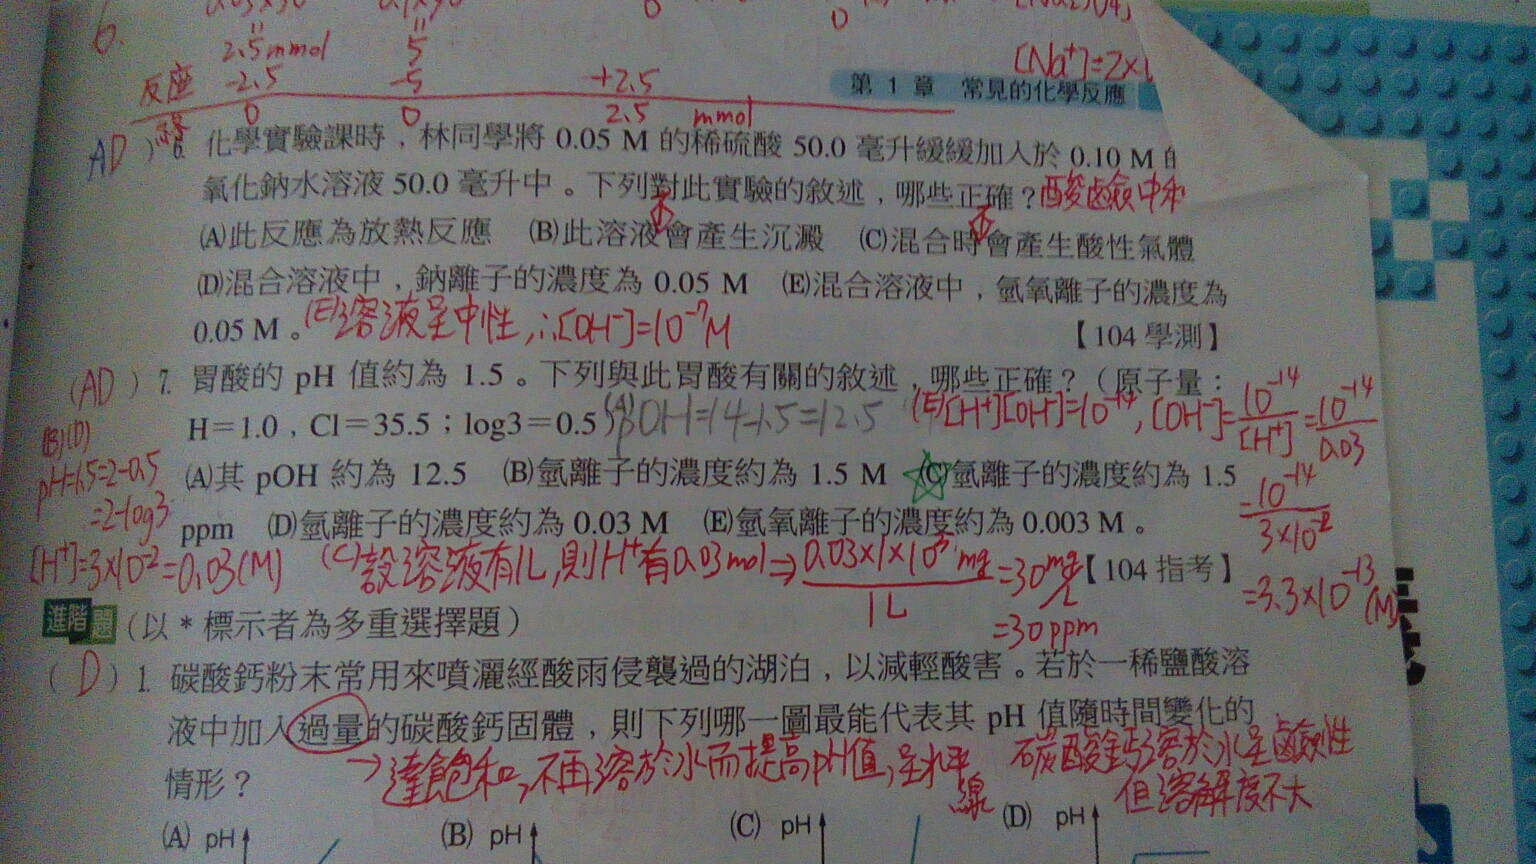 6.
2.5mmol 5
[Na⁺]=2×1
反應 -2.5 -5 +2.5
第 1 章 常見的化學反應
終 0 0 2.5 mmol
(AD) 6. 化學實驗課時，林同學將 0.05 M 的稀硫酸 50.0 毫升緩緩加入於 0.10 M
氧化鈉水溶液 50.0 毫升中。下列對此實驗的敘述，哪些正確？酸鹼中和
否 否
(A)此反應為放熱反應 (B)此溶液會產生沉澱 (C)混合時會產生酸性氣體
(D)混合溶液中，鈉離子的濃度為 0.05 M (E)混合溶液中，氫氧離子的濃度為
0.05 M。(E)溶液呈中性，∴[OH⁻]=10⁻⁷M 【104 學測】
(AD) 7. 胃酸的 pH 值約為 1.5。下列與此胃酸有關的敘述，哪些正確？（原子量：
H＝1.0，Cl＝35.5；log3＝0.5 (A)pOH=14-1.5=12.5 (E)[H⁺][OH⁻]=10⁻¹⁴, [OH⁻]=10⁻¹⁴/[H⁺]=10⁻¹⁴/0.03
(B)(D)
pH=1.5=2-0.5
(A)其 pOH 約為 12.5 (B)氫離子的濃度約為 1.5 M (C)氫離子的濃度約為 1.5
=2-log3
=10⁻¹⁴/3×10⁻²
ppm (D)氫離子的濃度約為 0.03 M (E)氫氧離子的濃度約為 0.003 M。
[H⁺]=3×10⁻²=0.03(M) (C)設溶液有1L,則H⁺有0.03mol⇒0.03×1×10³mg/1L=30mg/L 【104 指考】
=3.3×10⁻¹³(M)
=30ppm
進階題（以＊標示者為多重選擇題）
(D) 1. 碳酸鈣粉末常用來噴灑經酸雨侵襲過的湖泊，以減輕酸害。若於一稀鹽酸溶
液中加入過量的碳酸鈣固體，則下列哪一圖最能代表其 pH 值隨時間變化的
→達飽和,不再溶於水而提高pH值,呈水平線
碳酸鈣溶於水呈鹼性
但溶解度不大
情形？
(A) pH (B) pH (C) pH (D) pH